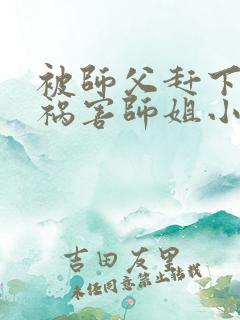 被師父赶下
祸害師姐小
吉田友里
未经同意禁止转载